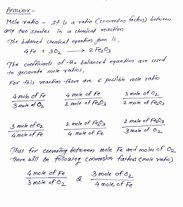 Answer -
Mole ratio - It is a ratio (conversion factor) between
any two species in a chemical reaction
The balanced chemical equation given is,
4Fe + 3O₂ → 2Fe₂O₃
The coefficients of the balanced equation are used
to generate mole ratios.
For this reaction there are 6 possible mole ratio
4 mole of Fe / 3 mole of O₂   4 mole of Fe / 2 mole of Fe₂O₃   3 mole of O₂ / 2 mole of Fe₂O₃
3 mole of O₂ / 4 mole of Fe   2 mole of Fe₂O₃ / 4 mole of Fe   2 mole of Fe₂O₃ / 3 mole of O₂
Thus for converting between mole Fe and moles of O₂
there will be following conversion factors (mole ratio)
4 mole of Fe / 3 mole of O₂ & 3 mole of O₂ / 4 mole of Fe